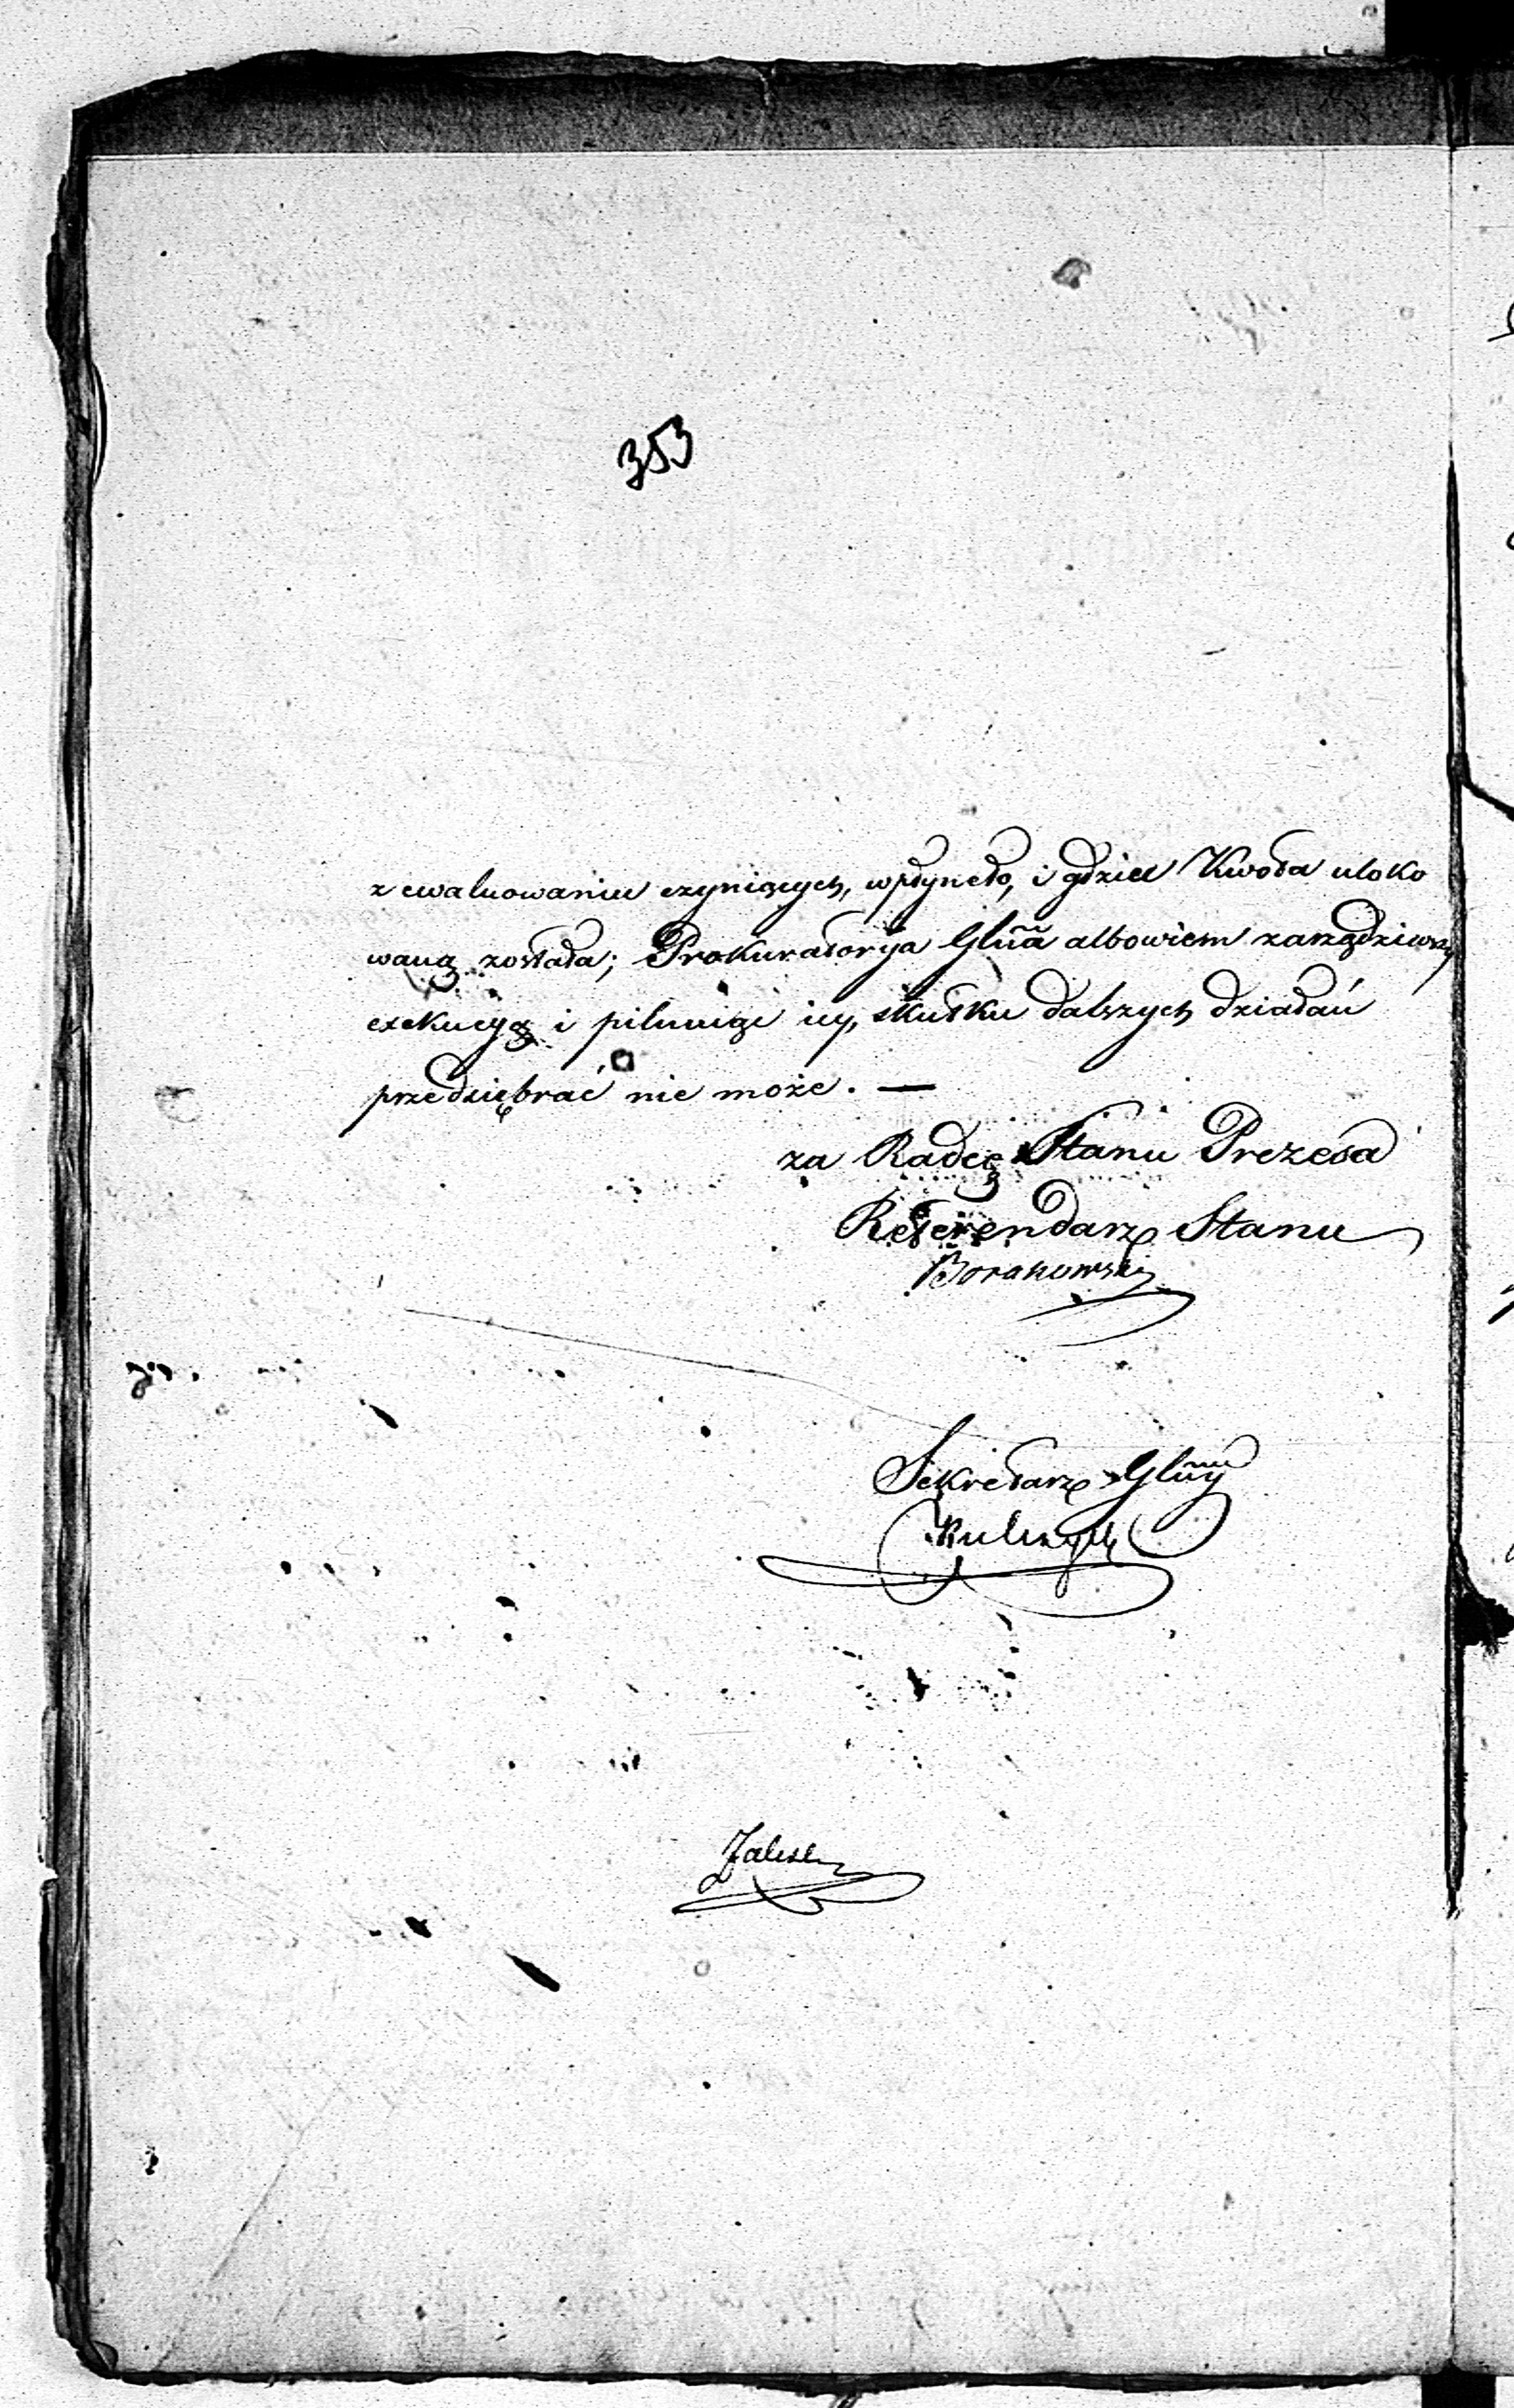 353
z ewaluowaniu czyniących, wpłynęło, i gdzie Kwota uloko
waną została; Prokuratorya Glña albowiem zarządziwszy
exekucyą i pilnuiąc iey, skutku dalszych działań
przedsiębrać nie może. —
za Radcę Stanu Prezesa
Referendarz Stanu
Borakowski
Sekretarz Glñy